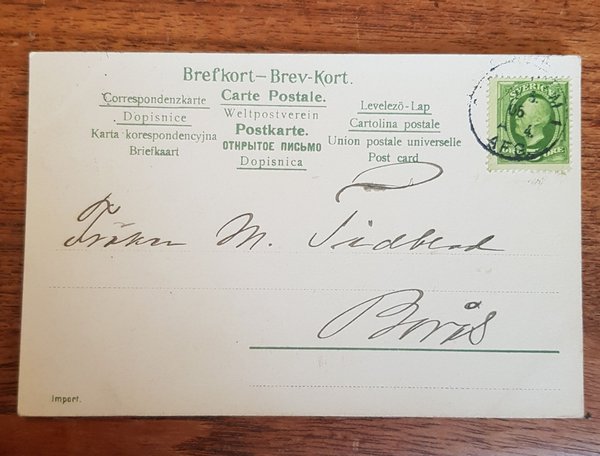 Brefkort–Brev-Kort.
Correspondenzkarte
Carte Postale.
Levelezö-Lap
Dopisnice
Weltpostverein
Cartolina postale
Karta korespondencyjna
Postkarte.
Union postale universelle
Briefkaart
ОТКРЫТОЕ ПИСЬМО
Post card
Dopisnica
SVERIGE
Fröken M. Sidblad
Borås
Import.